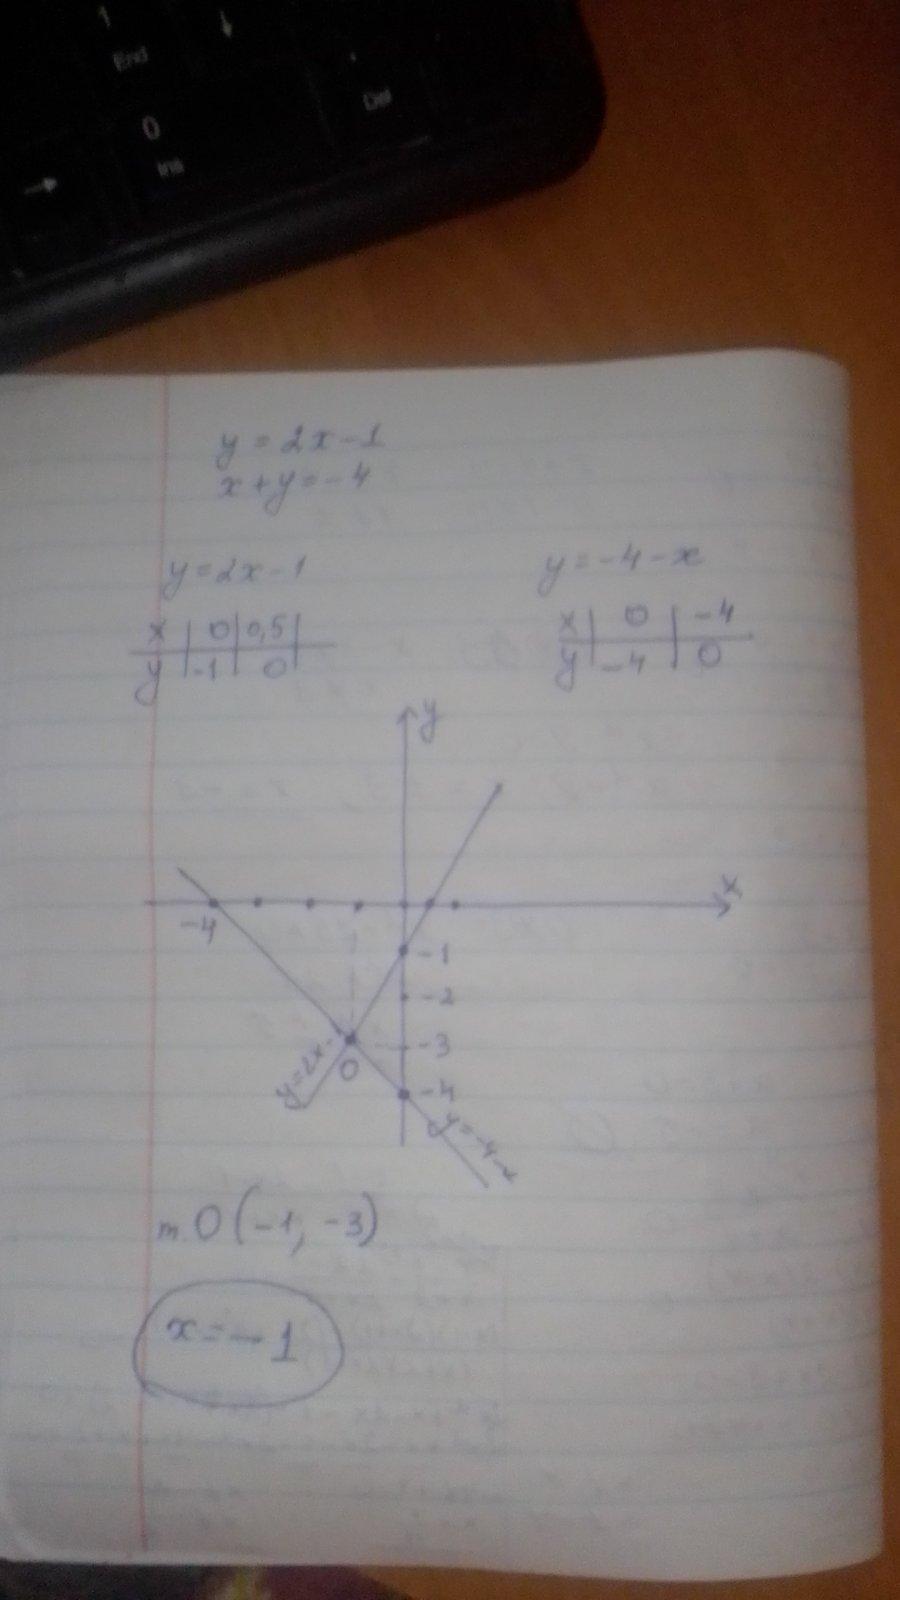 1
End
↓
.
Del
0
Ins
→
y = 2x - 1
x + y = -4
y = 2x - 1
y = -4 - x
x | 0 | 0,5 |
y | -1 | 0
x | 0 | -4
y | -4 | 0
y
x
-4
-1
-2
-3
-4
0
y = 2x -
y = -4 - x
т. O (-1, -3)
x = -1